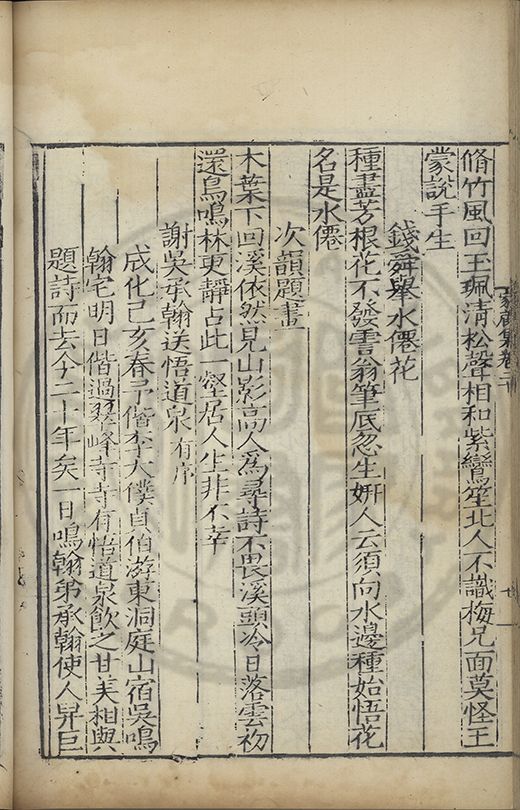 脩竹風回王珮清松聲相和紫鸞笙北人不識梅兄面莫怪王
蒙說手生
錢舜舉水僊花
種盡芳根花不發雪翁筆底忽生姸人云須向水邊種始悟花
名是水僊
次韻題畫
木葉下回溪依然見山影高人爲尋詩不畏溪頭冷日落雲初
還鳥鳴林更靜占此一壑居人生非不幸
謝吳承翰送悟道泉有序
成化己亥春予偕李太僕貞伯游東洞庭山宿吳鳴
翰宅明日偕過翠峰寺寺有悟道泉飮之甘美相與
題詩而去今二十年矣一日鳴翰弟承翰使人舁巨